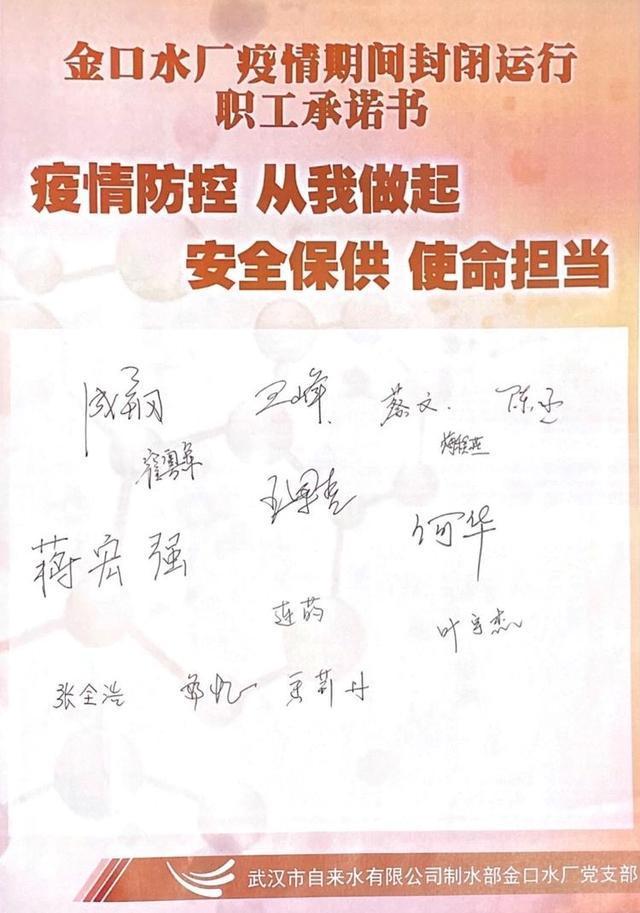 金口水厂疫情期间封闭运行
职工承诺书
疫情防控 从我做起
安全保供 使命担当
王峰 蔡文 陈丞
蒋宏强 何华
连药
叶宇杰
张全浩
武汉市自来水有限公司制水部金口水厂党支部